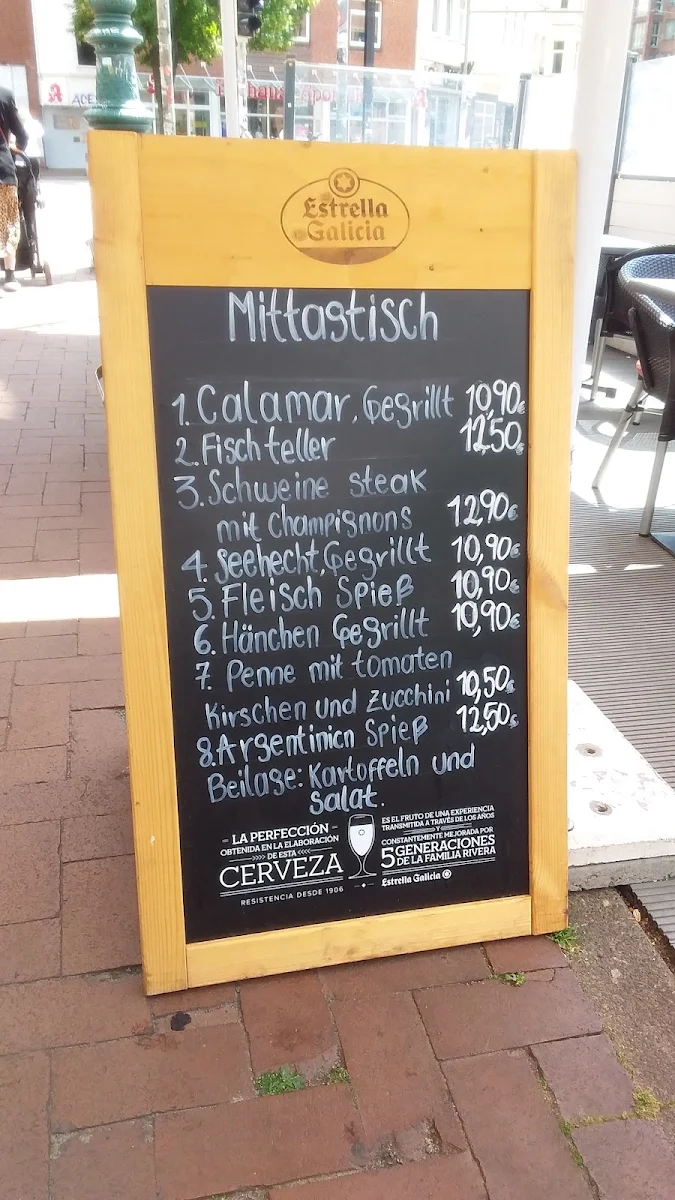 Estrella
Galicia
Mittagstisch
1. Calamar, Gegrillt 10,90€
2. Fischteller 12,50€
3. Schweine steak
mit Champignons 12,90€
4. Seehecht, Gegrillt 10,90€
5. Fleisch Spieß 10,90€
6. Hänchen Gegrillt 10,90€
7. Penne mit tomaten
Kirschen und Zucchini 10,50€
8. Argentinien Spieß 12,50€
Beilage: Kartoffeln und
Salat.
- LA PERFECCIÓN -
OBTENIDA EN LA ELABORACIÓN
DE ESTA
CERVEZA
RESISTENCIA DESDE 1906
ES EL FRUTO DE UNA EXPERIENCIA
TRANSMITIDA A TRAVÉS DE LOS AÑOS
Y
CONSTANTEMENTE MEJORADA POR
5 GENERACIONES
DE LA FAMILIA RIVERA
Estrella Galicia